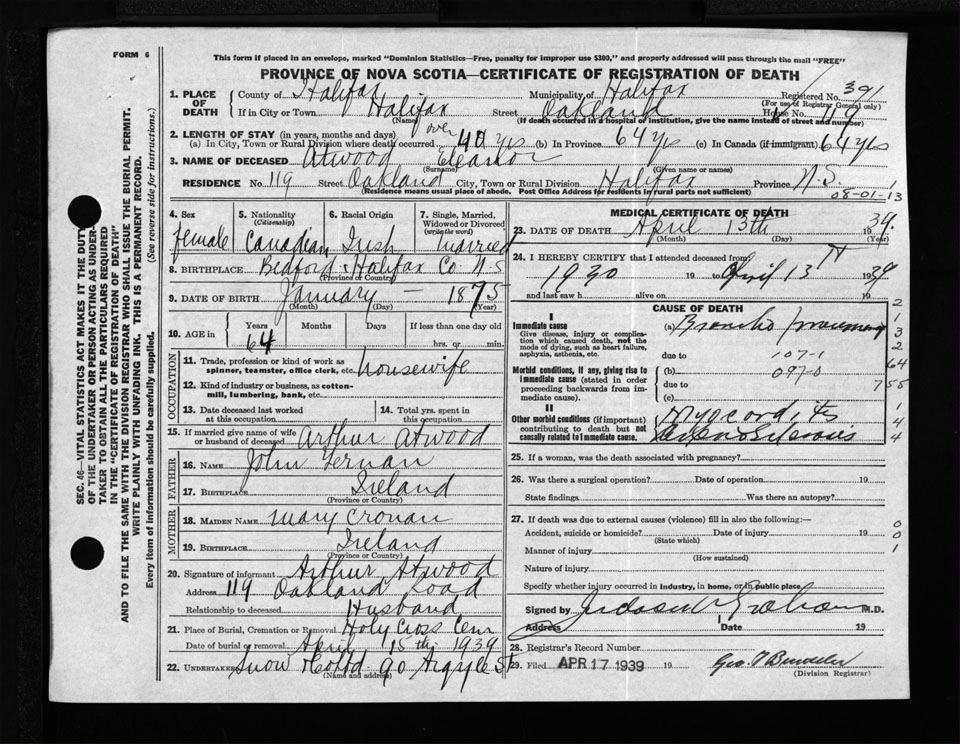 FORM 6
This form if placed in an envelope, marked "Dominion Statistics—Free, penalty for improper use $300," and properly addressed will pass through the mail "FREE"
PROVINCE OF NOVA SCOTIA—CERTIFICATE OF REGISTRATION OF DEATH
1. PLACE OF DEATH County of Halifax Municipality of Halifax Registered No. 391
(For use of Registrar General only)
If in City or Town Halifax Street Oakland House No. 119
(Name) (If death occurred in a hospital or institution, give the name instead of street and number)
2. LENGTH OF STAY (in years, months and days)
(a) In City, Town or Rural Division where death occurred over 40 yrs (b) In Province 64 yrs (c) In Canada (if immigrant) 64 yrs
3. NAME OF DECEASED Atwood Eleanor
(Surname) (Given name or names)
RESIDENCE No. 119 Street Oakland City, Town or Rural Division Halifax Province N.S.
(Residence means usual place of abode. Post Office Address for residents in rural parts not sufficient)
08-01-13
4. Sex female
5. Nationality (Citizenship) Canadian
6. Racial Origin Irish
7. Single, Married, Widowed or Divorced (write the word) married
8. BIRTHPLACE Bedford Halifax Co. N.S
(Province or Country)
9. DATE OF BIRTH January — 1875
(Month) (Day) (Year)
10. AGE in Years Months Days If less than one day old
64 hrs. or min.
OCCUPATION
11. Trade, profession or kind of work as spinner, teamster, office clerk, etc. housewife
12. Kind of industry or business, as cotton-mill, lumbering, bank, etc.
13. Date deceased last worked at this occupation
14. Total yrs. spent in this occupation
15. If married give name of wife or husband of deceased Arthur Atwood
FATHER
16. NAME John
17. BIRTHPLACE Ireland
(Province or Country)
MOTHER
18. MAIDEN NAME Mary Cronan
19. BIRTHPLACE Ireland
(Province or Country)
20. Signature of informant Arthur Atwood
Address 119 Oakland Road
Relationship to deceased Husband
21. Place of Burial, Cremation or Removal Holy Cross Cem
Date of burial or removal April 15th 1939
22. UNDERTAKER Snow & Co Ltd 90 Argyle St
(Name and address)
MEDICAL CERTIFICATE OF DEATH
23. DATE OF DEATH April 13th 1939.
(Month) (Day) (Year)
24. I HEREBY CERTIFY that I attended deceased from
1930 19 to April 13 1939
and last saw h alive on 19
CAUSE OF DEATH
I
Immediate cause
Give disease, injury or complication which caused death, not the mode of dying, such as heart failure, asphyxia, asthenia, etc.
(a) Broncho pneumonia
due to 107-1
Morbid conditions, if any, giving rise to immediate cause (stated in order proceeding backwards from immediate cause).
(b) 097-0
due to
(c)
II
Other morbid conditions (if important) contributing to death but not causally related to immediate cause.
Myocarditis
2
1
3
2
64
755
1
4
4
25. If a woman, was the death associated with pregnancy?
26. Was there a surgical operation? Date of operation 19
State findings Was there an autopsy?
27. If death was due to external causes (violence) fill in also the following:—
Accident, suicide or homicide? Date of injury 19
(State which)
Manner of injury
(How sustained)
Nature of injury
Specify whether injury occurred in industry, in home, or in public place
0
0
1
Signed by Judson V Graham M.D.
Address Date 19
28. Registrar's Record Number
29. Filed APR 17 1939 19
(Division Registrar)
SEC. 46—VITAL STATISTICS ACT MAKES IT THE DUTY
OF THE UNDERTAKER OR PERSON ACTING AS UNDER-
TAKER TO OBTAIN ALL THE PARTICULARS REQUIRED
IN THE "CERTIFICATE OF REGISTRATION OF DEATH"
AND TO FILE THE SAME WITH THE DIVISION REGISTRAR WHO SHALL ISSUE THE BURIAL PERMIT.
WRITE PLAINLY WITH UNFADING INK. THIS IS A PERMANENT RECORD.
Every item of information should be carefully supplied. (See reverse side for instructions.)